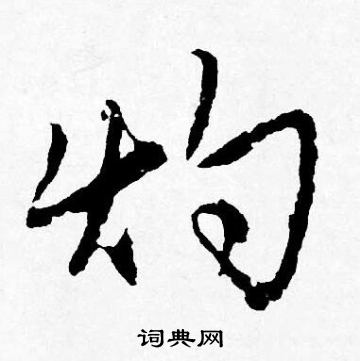 灼
词典网